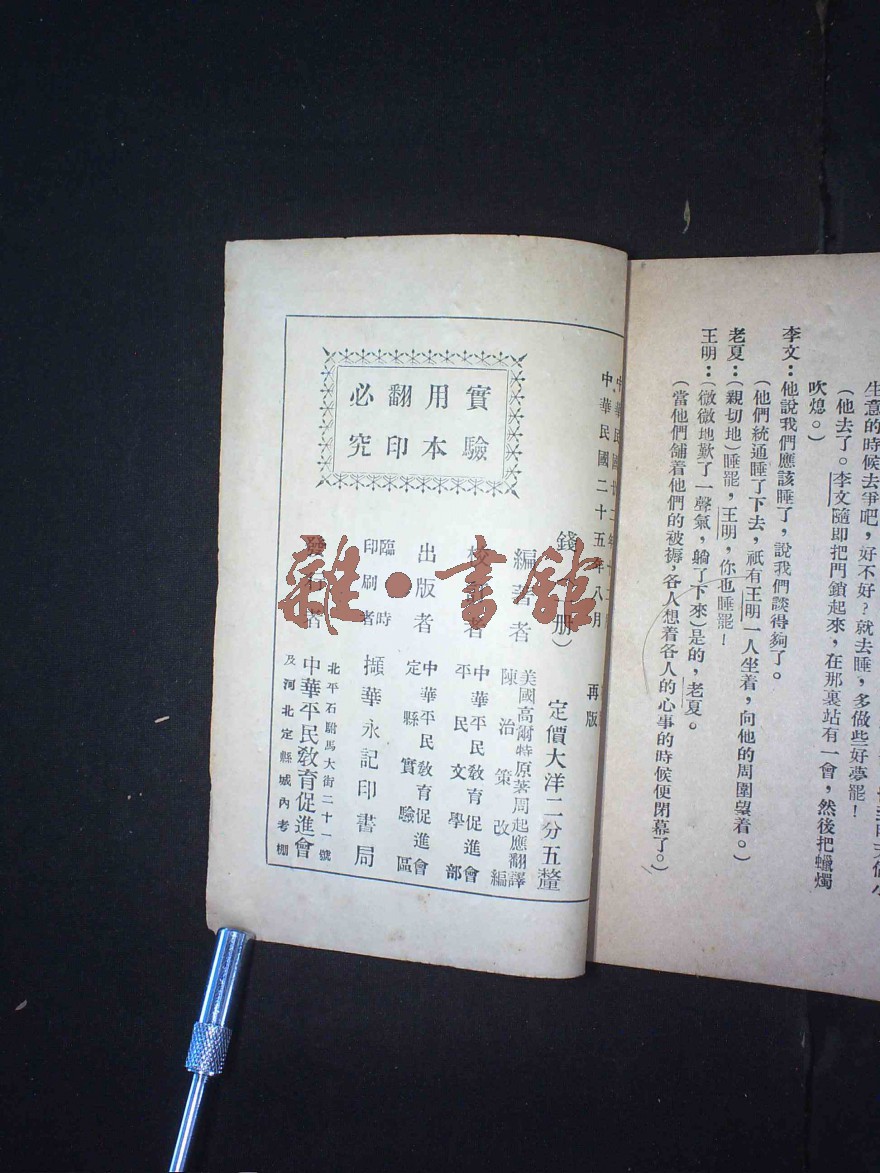 生意的時候去爭吧，好不好？就去睡，多做些好夢罷！
（他去了。李文隨即把門鎖起來，在那裏站有一會，然後把蠟燭
吹熄。）
李文：他說我們應該睡了，說我們談得夠了。
（他們統通睡了下去，祇有王明一人坐着，向他的周圍望着。）
老夏：（親切地）睡罷，王明，你也睡罷！
王明：（微微地歎了一聲氣，躺了下來）是的，老夏。
（當他們舖着他們的被褥，各人想着各人的心事的時候便閉幕了。）
中華民國廿二年十二
中華民國二十五年八月 再版
錢（一册） 定價大洋二分五釐
編著者 美國高爾特原著周起應翻譯
陳治策改編
校訂者 中華平民教育促進會
平民文學部
出版者 中華平民教育促進會
定縣實驗區
臨時
印刷者 擷華永記印書局
發行者 中華平民教育促進會
北平石駙馬大街二十一號
及河北定縣城內考棚
實驗
用本
翻印
必究
雜·書館